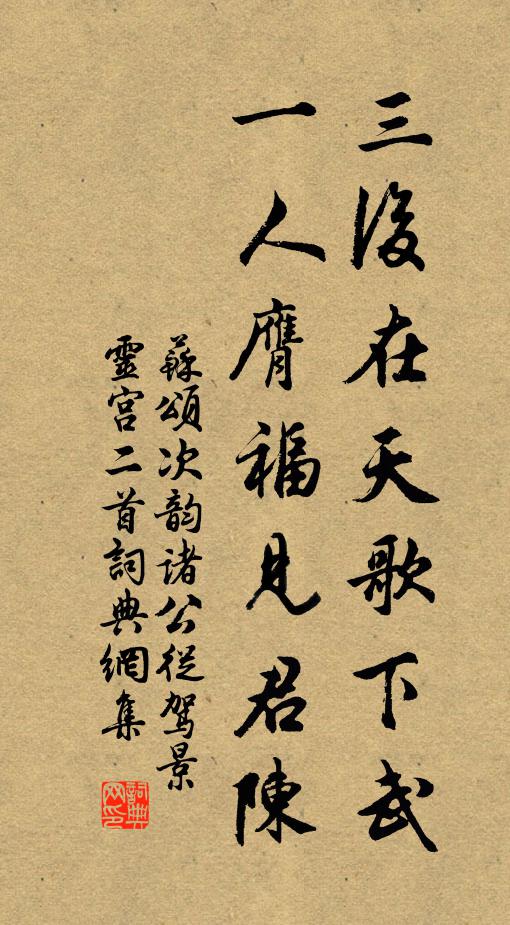 三後在天歌下武
一人膺福見君陳
蘇頌次韵诸公從駕景
靈宫二首詞典網集
詞典网印